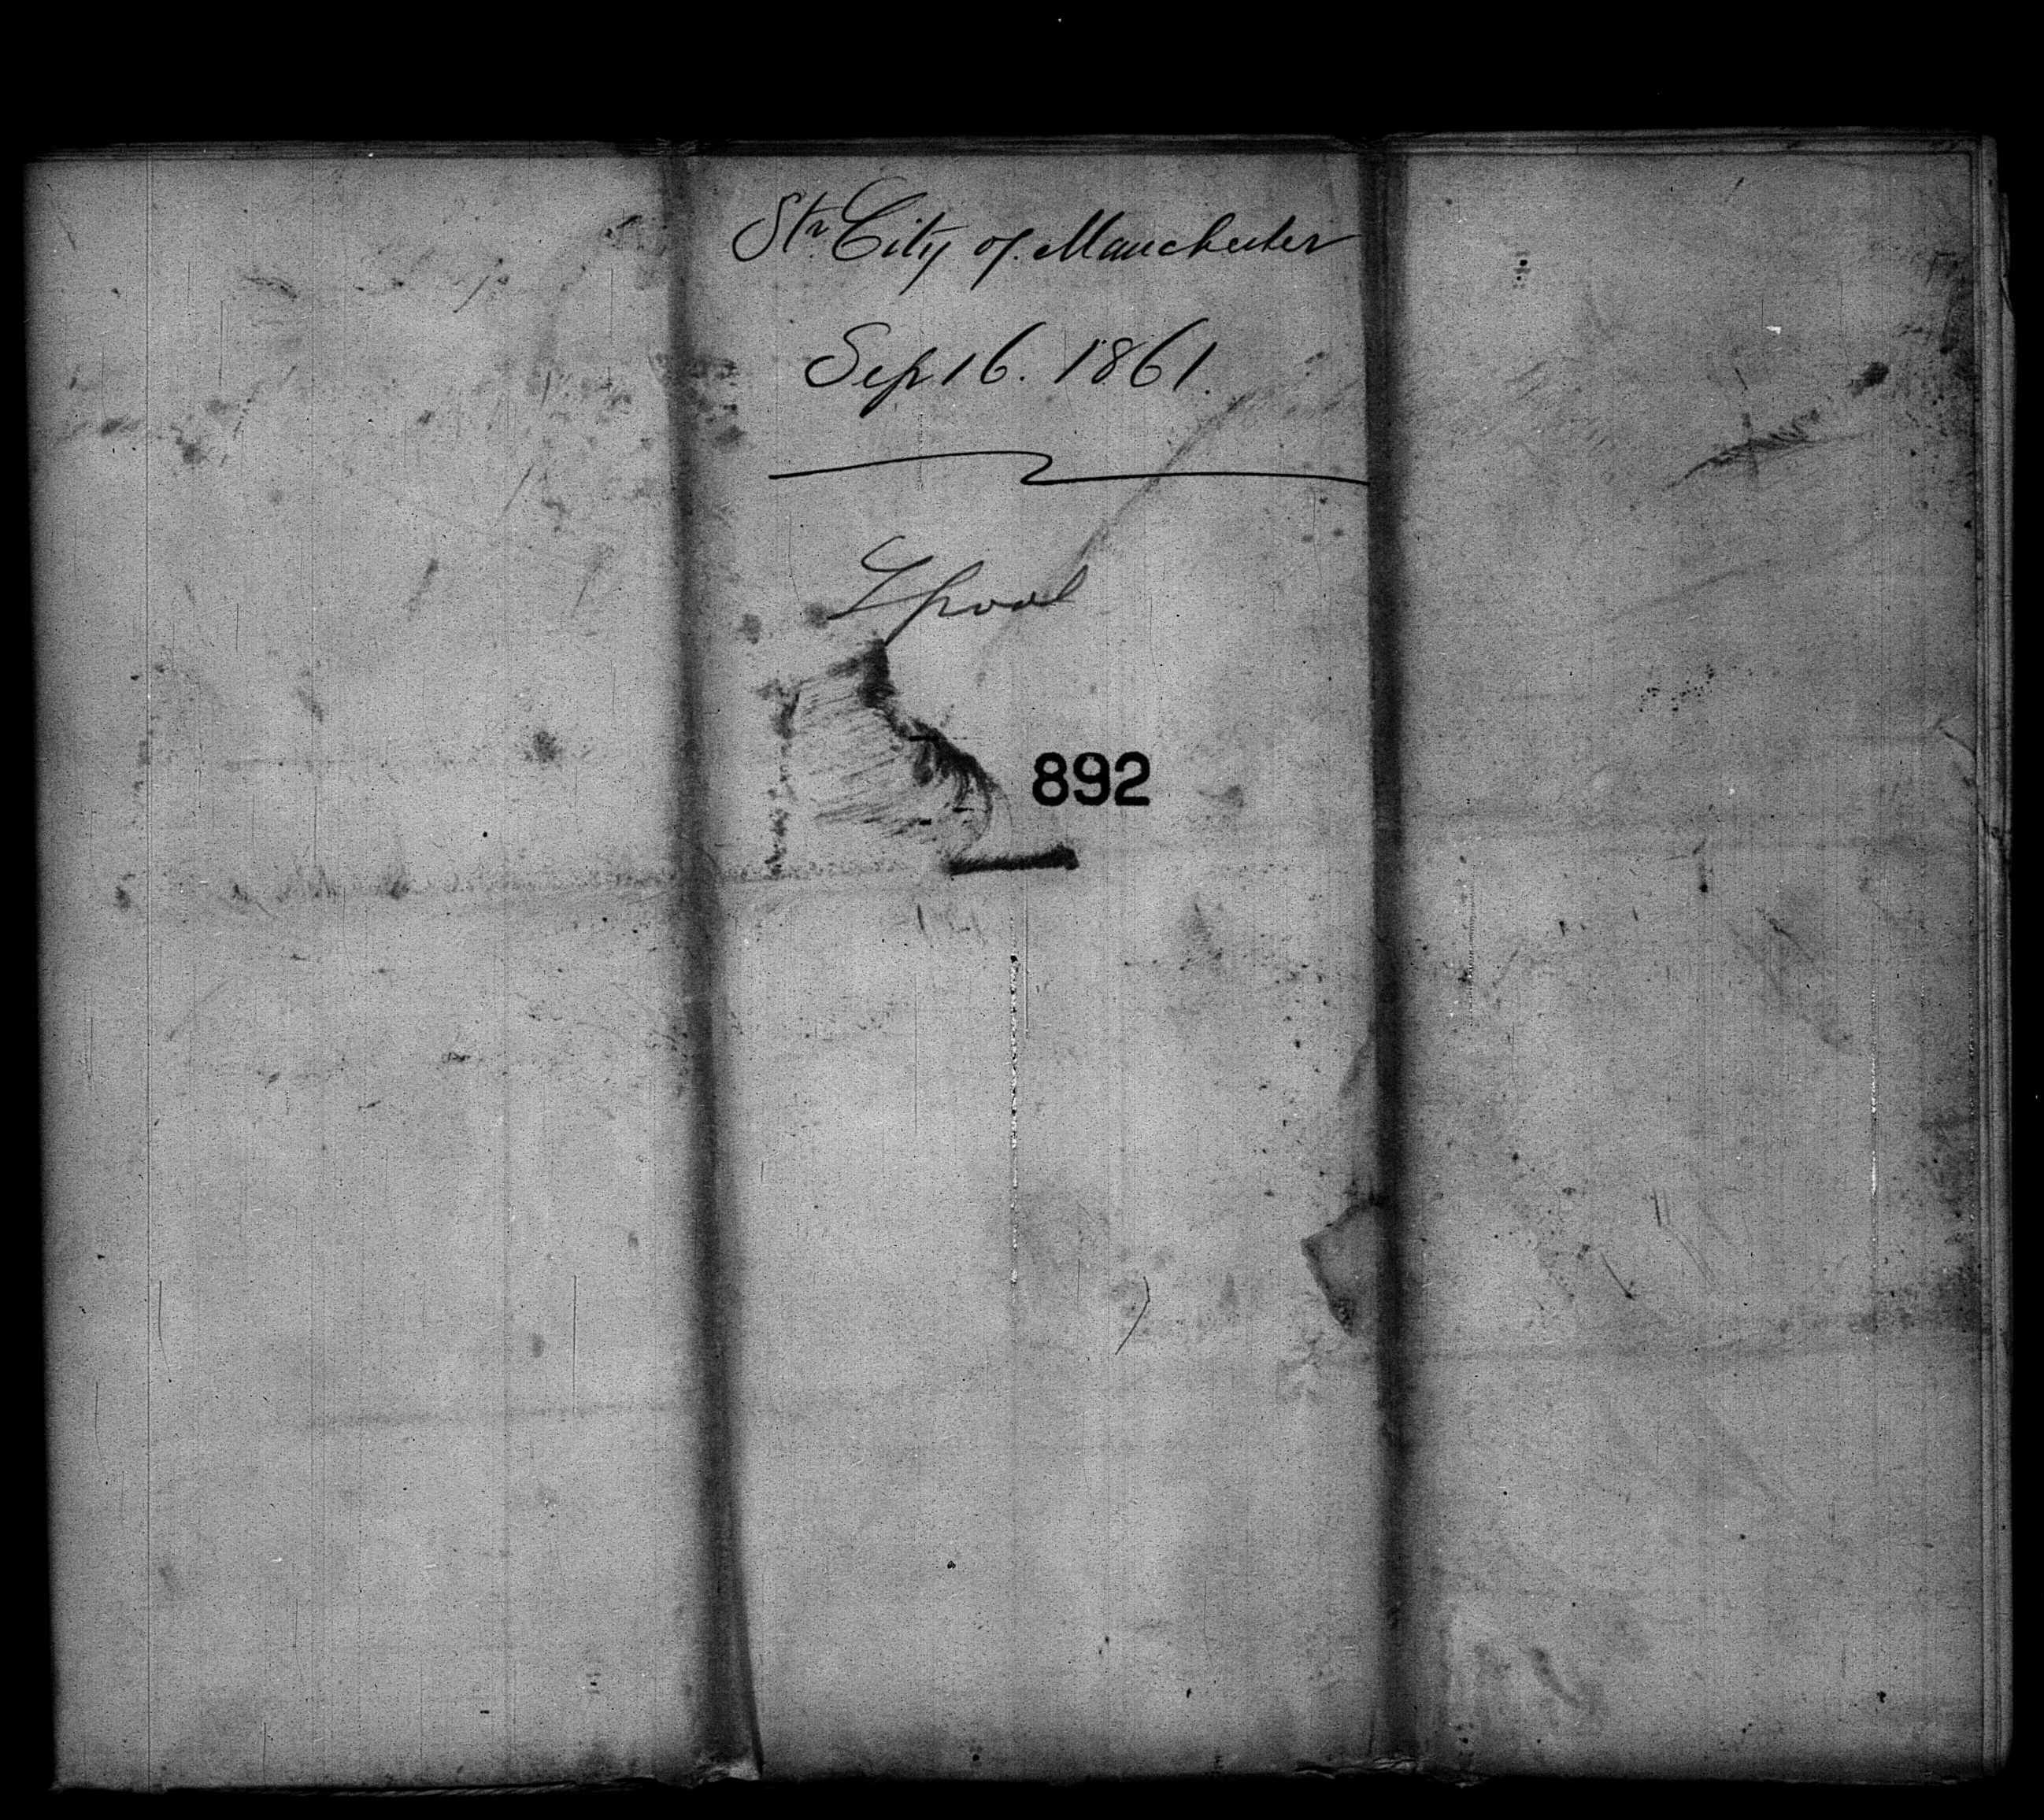 Str. City of Manchester
Sep 16. 1861.
Lpool
892